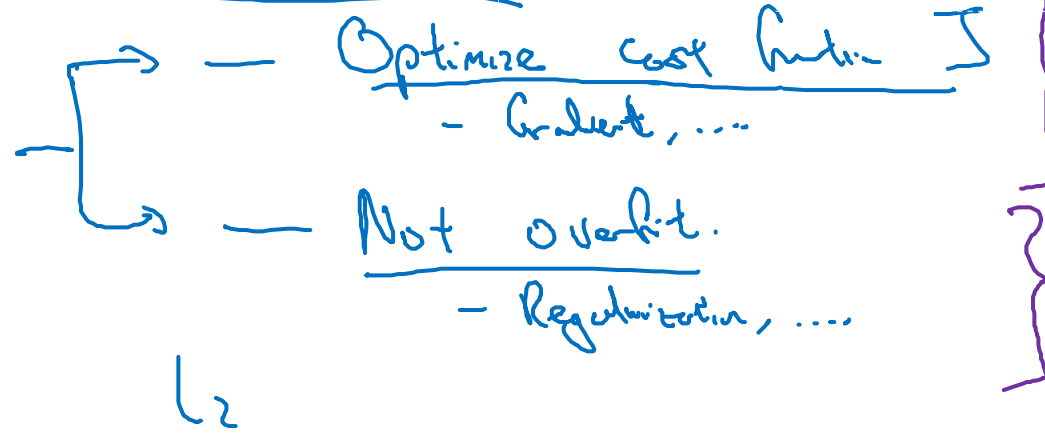 — Optimize cost function J
- Gradient, ....
— Not overfit.
- Regularization, ....
L2